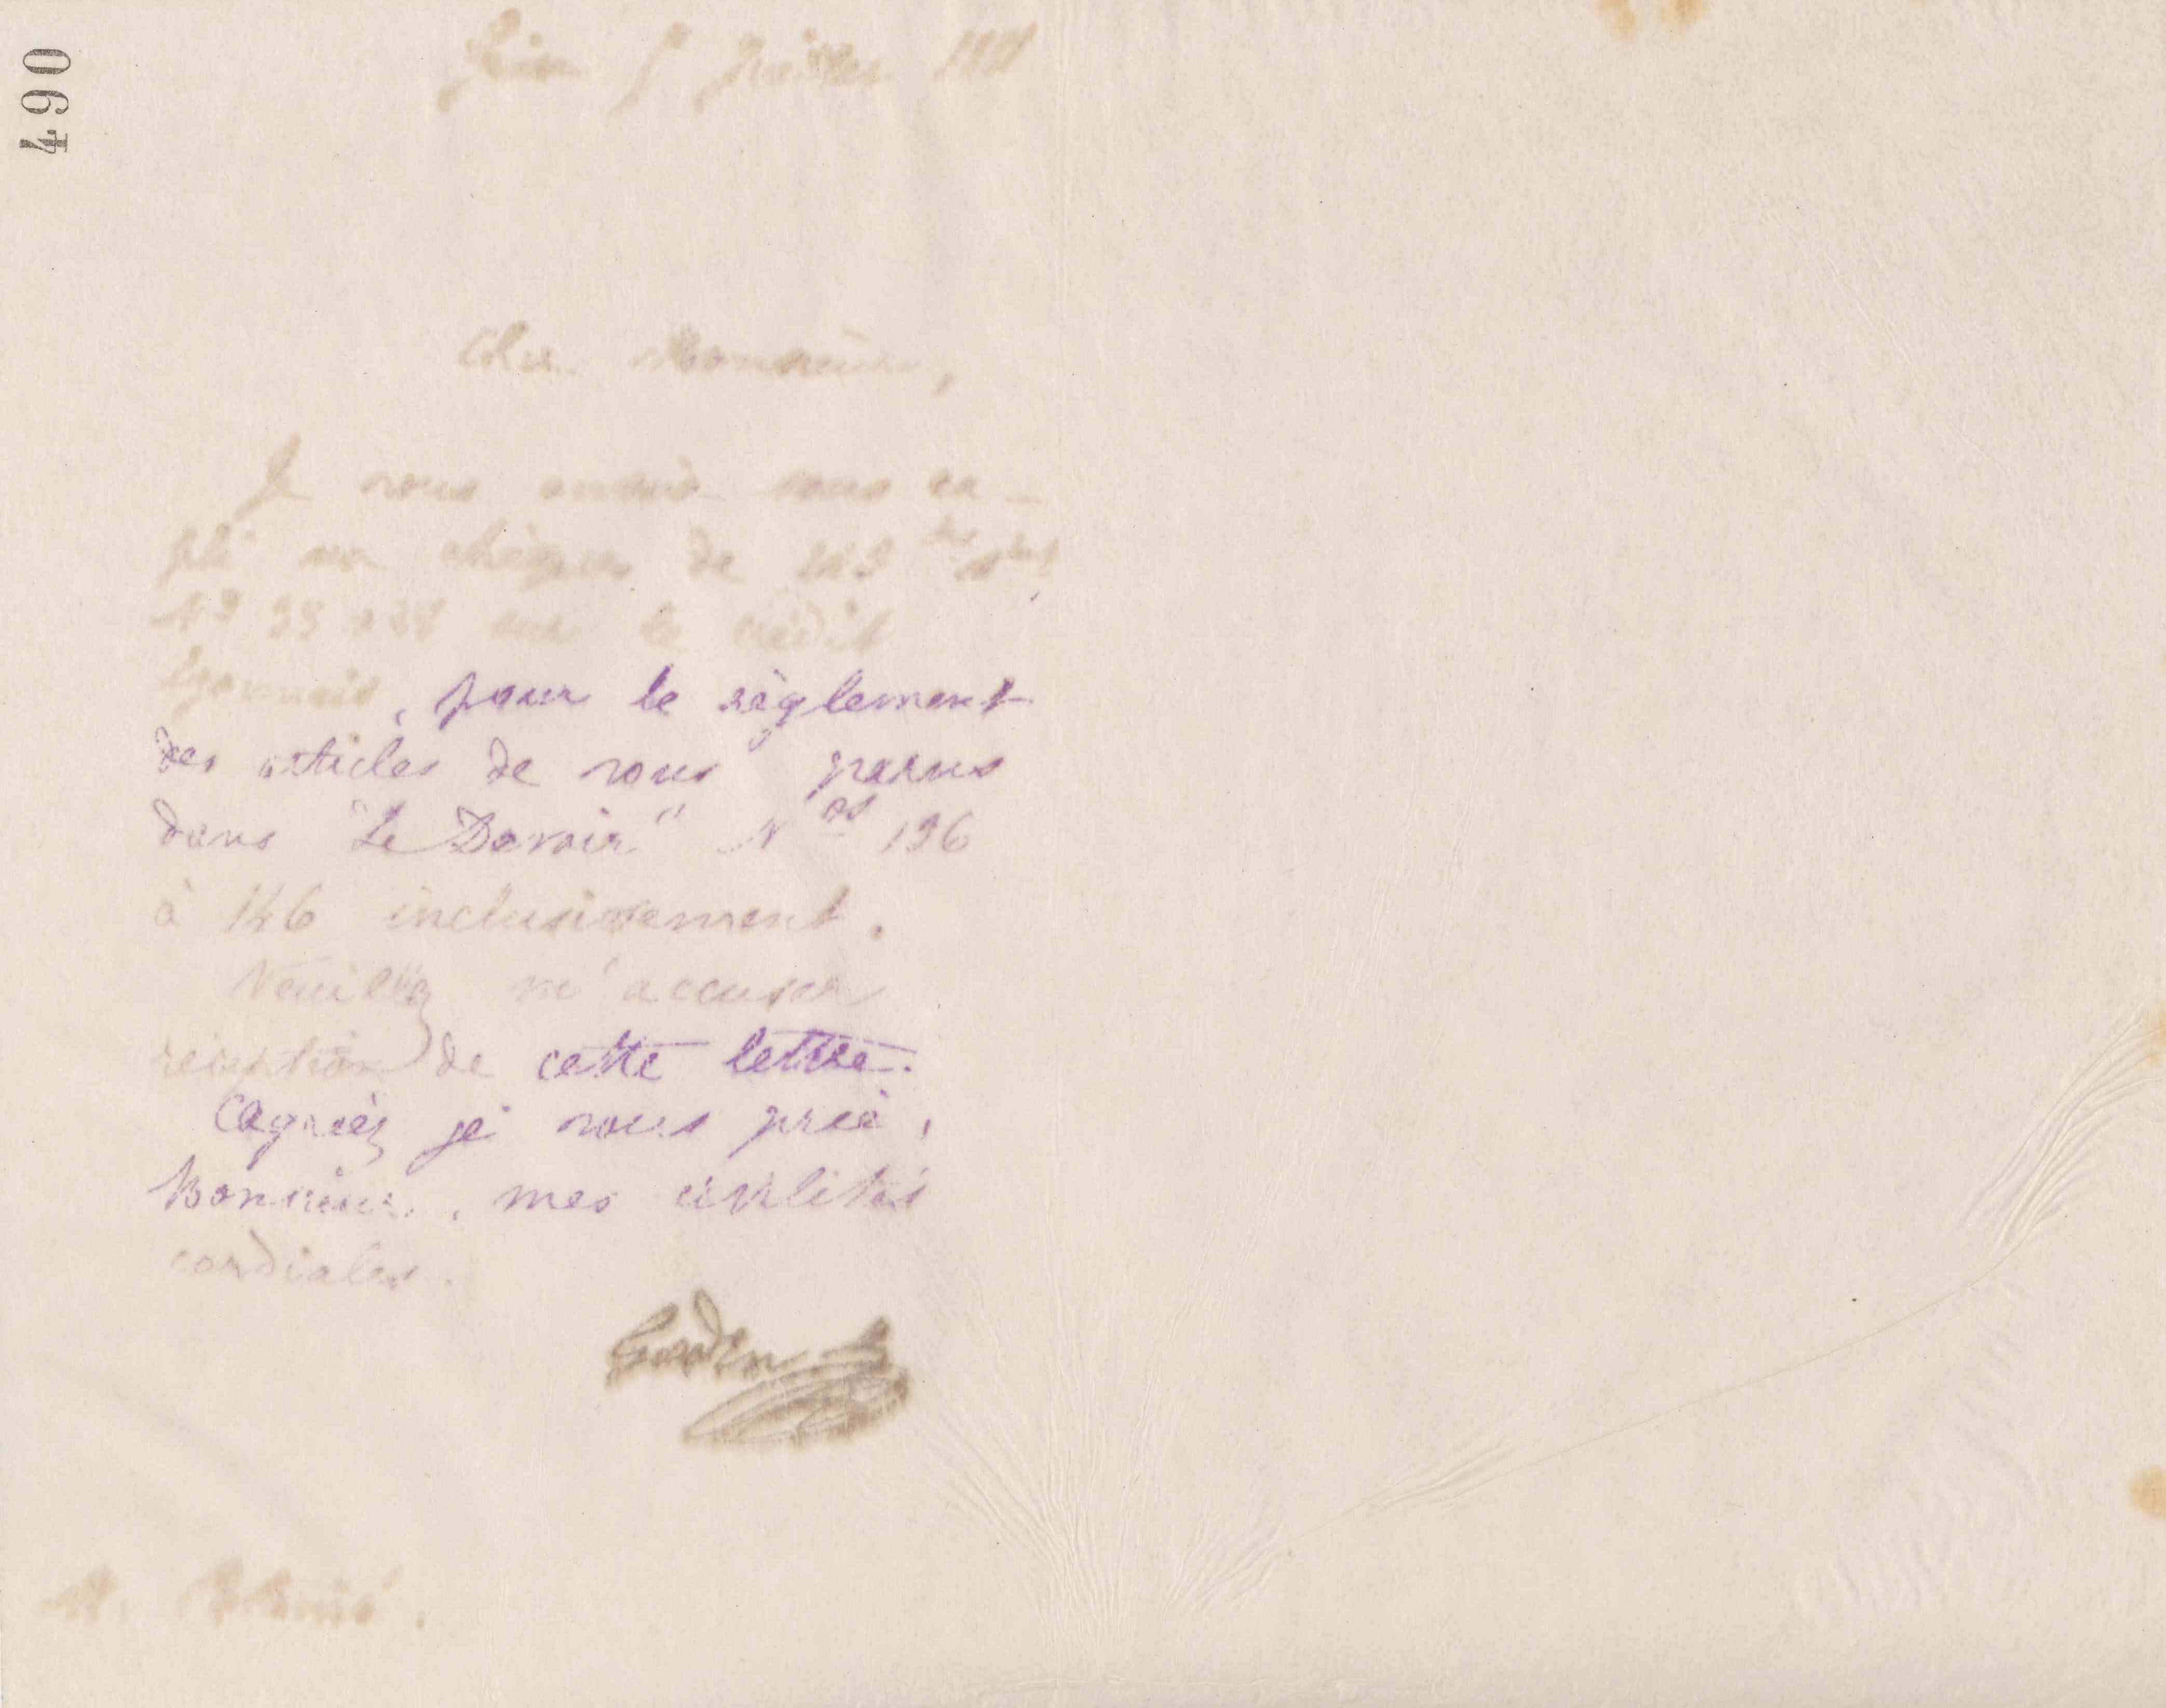 490
Juillet
Cher Monsieur,
Je vous envoie sous ce
pli un chèque de
sur le crédit
lyonnais, pour le règlement
des articles de vous parus
dans "Le Devoir" Nos 136
à 146 inclusivement.
Veuillez m'accuser
réception de cette lettre.
Agréez je vous prie,
Monsieur, mes civilités
cordiales.
Godin
M.